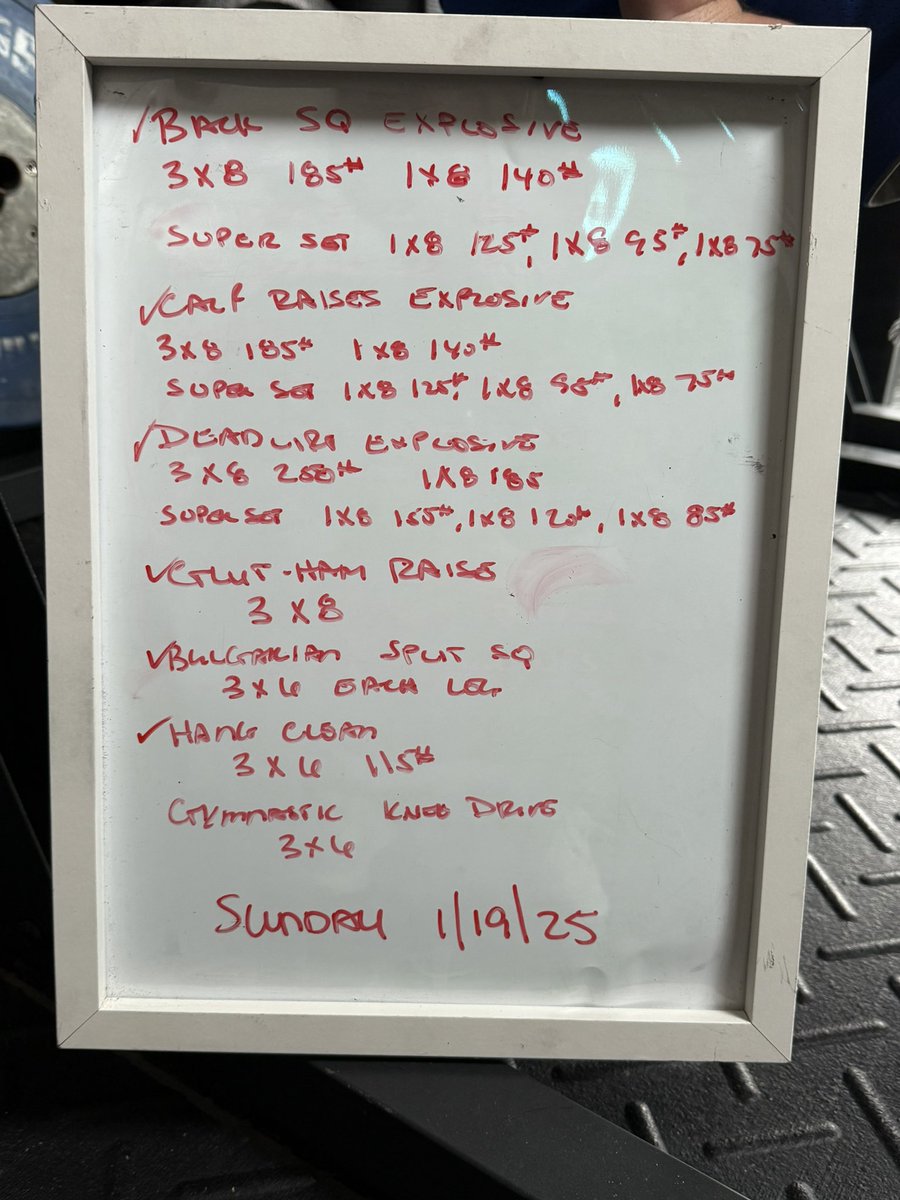 ✓BACK SQ EXPLOSIVE
3X8 185# 1X8 140#
SUPER SET 1X8 125#, 1X8 95#, 1X8 75#
✓CALF RAISES EXPLOSIVE
3X8 185# 1X8 140#
SUPER SET 1X8 125#, 1X8 95#, 1X8 75#
✓DEADLIFT EXPLOSIVE
3X8 1X8 185
SUPERSET 1X8 155#, 1X8 120#, 1X8 85#
✓GLUT-HAM RAISE
3X8
✓BULGARIAN SPLIT SQ
3X6 EACH LEG
✓HANG CLEAN
3X6 115#
GYMNASTIC KNEE DRIVE
3X6
SUNDAY 1/19/25